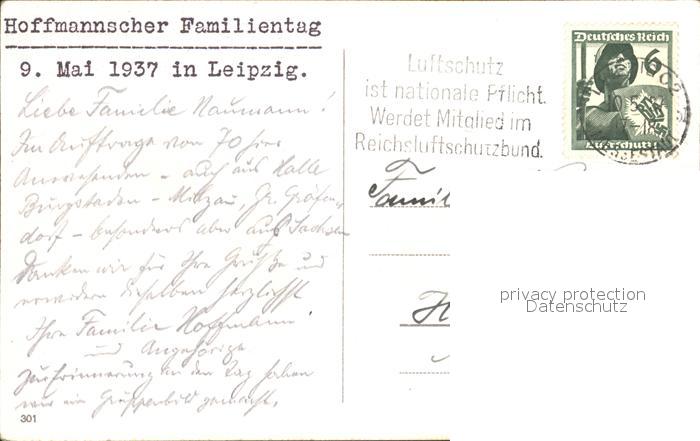 Hoffmannscher Familientag
9. Mai 1937 in Leipzig.
Liebe Familie Naumann!
Im Auftrage von 70 hier
Anwesenden - auch aus Halle
Burgstaden - Gr. Gräfen-
dorf - besonders aber aus Sachsen
danken wir für Ihre Grüße und
erwidern dieselben herzlichst
Ihre Familie Hoffmann
und Angehörige
Zur Erinnerung an den Tag haben
wir ein Gruppenbild gemacht.
301
Luftschutz
ist nationale Pflicht.
Werdet Mitglied im
Reichsluftschutzbund.
Deutsches Reich
6
Luftschutz
Famil
H
privacy protection
Datenschutz